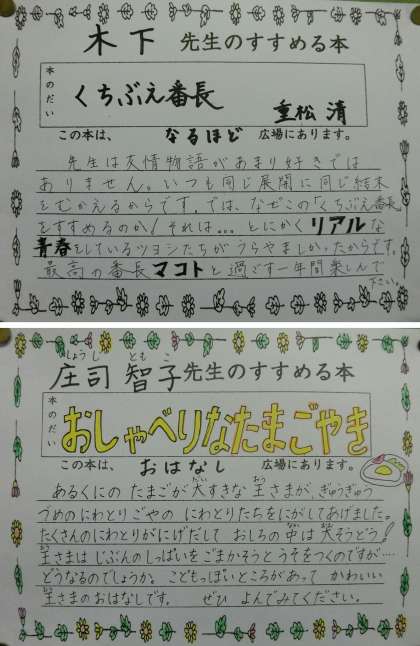 木下 先生のすすめる本
本のだい
くちぶえ番長
重松 清
この本は、 なるほど 広場にあります。
先生は友情物語があまり好きでは
ありません。いつも同じ展開に同じ結末
をむかえるからです。では、なぜこの「くちぶえ番長
をすすめるのか!それは…とにかくリアルな
青春をしているツヨシたちがうらやましかったからです。
最高の番長マコトと過ごす一年間楽しんで
下さい。
しょうじ ともこ
庄司 智子先生のすすめる本
本のだい
おしゃべりなたまごやき
この本は、 おはなし 広場にあります。
あるくにの たまごが大すきな 王さまが、ぎゅうぎゅう
づめのにわとりごやの にわとりたちをにがしてあげました。
たくさんのにわとりがにげだして おしろの中は大そうどう!
王さまはじぶんのしっぱいをごまかそうとうそをつくのですが…
どうなるのでしょうか。こどもっぽいところがあって かわいい
王さまのおはなしです。 ぜひ よんでみてください。